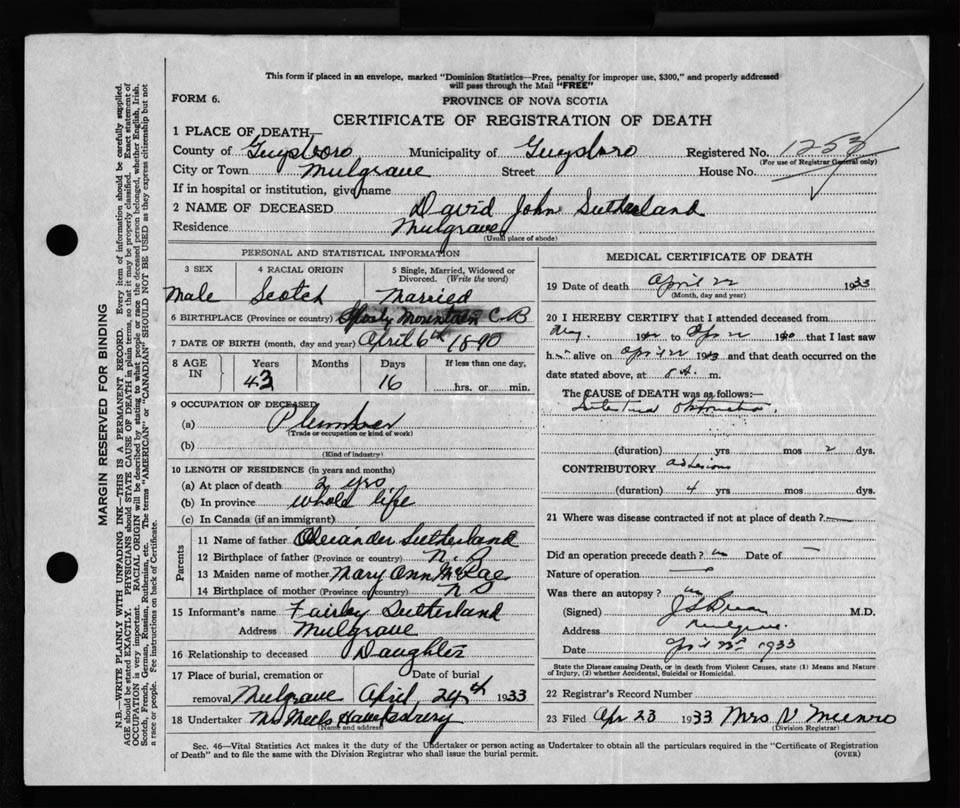 This form if placed in an envelope, marked "Dominion Statistics—Free, penalty for improper use, $300," and properly addressed
will pass through the Mail "FREE"
FORM 6.
PROVINCE OF NOVA SCOTIA
CERTIFICATE OF REGISTRATION OF DEATH
1 PLACE OF DEATH,—
County of Guysboro Municipality of Guysboro Registered No. 1253
(For use of Registrar General only)
City or Town Mulgrave Street House No.
If in hospital or institution, give name
2 NAME OF DECEASED David John Sutherland
Residence Mulgrave
(Usual place of abode)
PERSONAL AND STATISTICAL INFORMATION
3 SEX 4 RACIAL ORIGIN 5 Single, Married, Widowed or Divorced. (Write the word)
Male Scotch Married
6 BIRTHPLACE (Province or country) Mountain C B
7 DATE OF BIRTH (month, day and year) April 6th 1890
8 AGE IN Years Months Days If less than one day,
43 16 hrs. or min.
9 OCCUPATION OF DECEASED
(a) Plumber
(Trade or occupation or kind of work)
(b)
(Kind of industry)
10 LENGTH OF RESIDENCE (in years and months)
(a) At place of death 2 yrs
(b) In province whole life
(c) In Canada (if an immigrant)
Parents
11 Name of father Sutherland
12 Birthplace of father (Province or country) N. S
13 Maiden name of mother Mary Ann McRae
14 Birthplace of mother (Province or country) N S
15 Informant's name Fairley Sutherland
Address Mulgrave
16 Relationship to deceased Daughter
17 Place of burial, cremation or Date of burial
removal Mulgrave April 24th 1933
18 Undertaker
(Name and address)
MEDICAL CERTIFICATE OF DEATH
19 Date of death April 22 1933
(Month, day and year)
20 I HEREBY CERTIFY that I attended deceased from
19 to 19 that I last saw
h alive on April 22 19 and that death occurred on the
date stated above, at m.
The CAUSE of DEATH was as follows:
Intestinal Obstruction.
(duration) yrs mos 2 dys.
CONTRIBUTORY adhesions
(duration) 4 yrs mos dys.
21 Where was disease contracted if not at place of death?
Did an operation precede death? no Date of —
Nature of operation —
Was there an autopsy? no
(Signed) M.D.
Address Mulgrave.
Date April 23rd 1933
State the Disease causing Death, or in death from Violent Causes, state (1) Means and Nature
of Injury, (2) whether Accidental, Suicidal or Homicidal.
22 Registrar's Record Number
23 Filed Apr 23 1933 Mrs V Munro
(Division Registrar)
Sec. 46—Vital Statistics Act makes it the duty of the Undertaker or person acting as Undertaker to obtain all the particulars required in the "Certificate of Registration
of Death" and to file the same with the Division Registrar who shall issue the burial permit. (OVER)
MARGIN RESERVED FOR BINDING
N.B.—WRITE PLAINLY WITH UNFADING INK—THIS IS A PERMANENT RECORD. Every item of information should be carefully supplied.
AGE should be stated EXACTLY. PHYSICIANS should STATE CAUSE OF DEATH in plain terms, so that it may be properly classified. Exact statement of
OCCUPATION is very important. RACIAL ORIGIN will be described by stating to what people or race the deceased person belonged, whether English, Irish,
Scotch, French, German, Russian, Ruthenian, etc. The terms "AMERICAN" or "CANADIAN" SHOULD NOT BE USED as they express citizenship but not
a race or people. See instructions on back of Certificate.